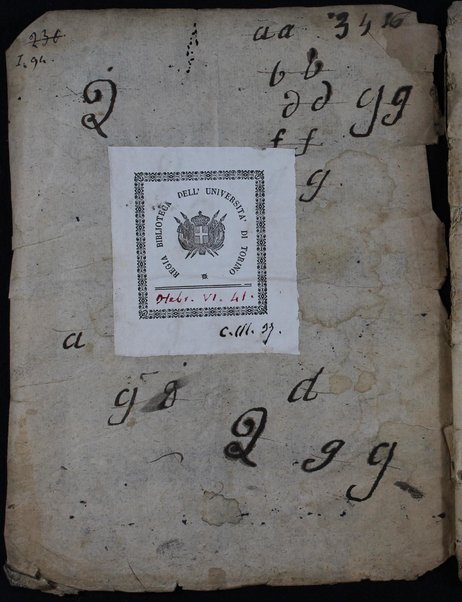 236
I. 92.
aa 3 4 16
b b
2 d d g g
f f
g
REGIA BIBLIOTECA DELL' UNIVERSITA' DI TORINO
Hebr. VI. 41.
C. III. 27.
a
g 8 d
2 g g